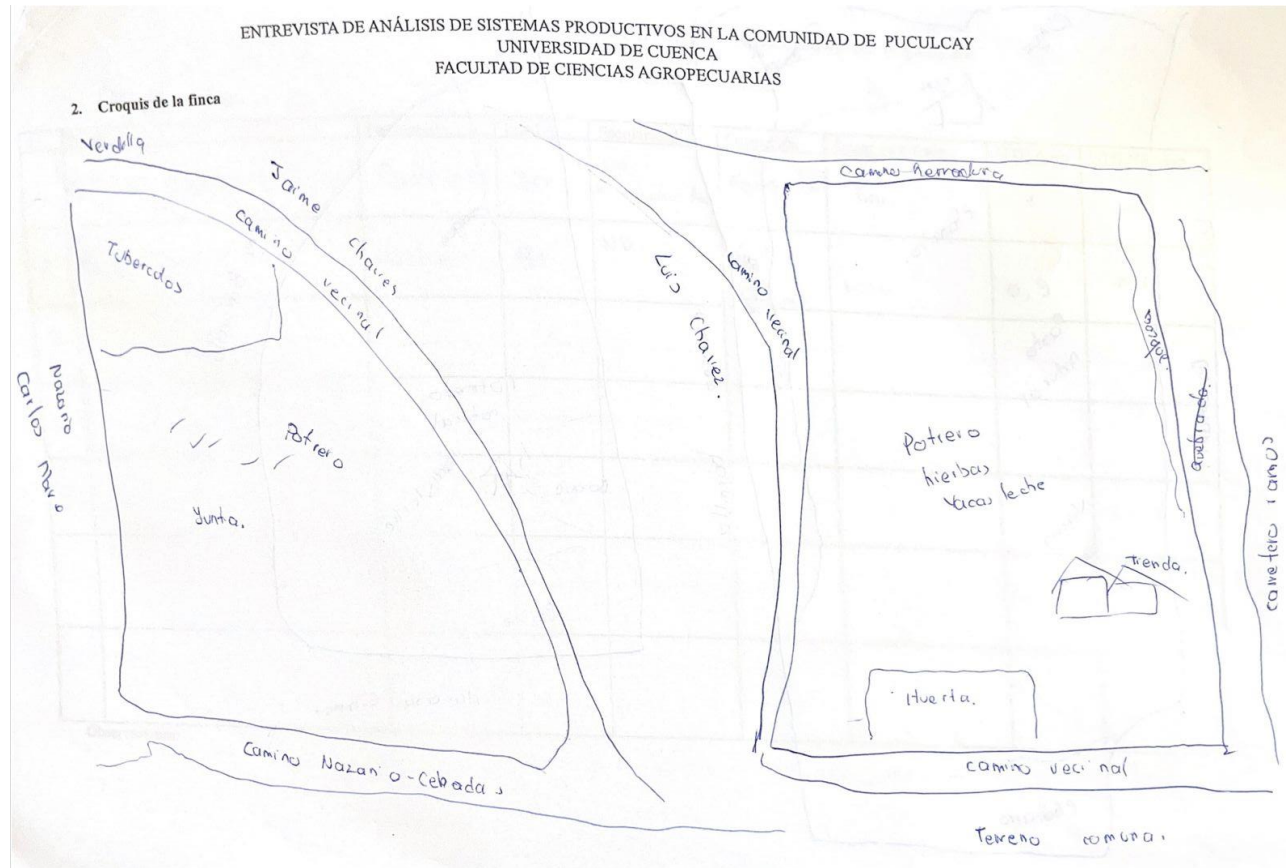 ENTREVISTA DE ANÁLISIS DE SISTEMAS PRODUCTIVOS EN LA COMUNIDAD DE PUCULCAY
UNIVERSIDAD DE CUENCA
FACULTAD DE CIENCIAS AGROPECUARIAS
2. Croquis de la finca
Verdilla
Jaime Chaves
camino vecinal
Tuberculos
Nazario
Carlos
Potrero
Yunta.
Camino Nazario-Cebadas
Luis Chavez.
camino vecinal
camino herradura
Bosque.
quebrada.
carretero
Potrero
hierbas
vacas leche
Tienda.
Huerta.
camino vecinal
Terreno comuna.